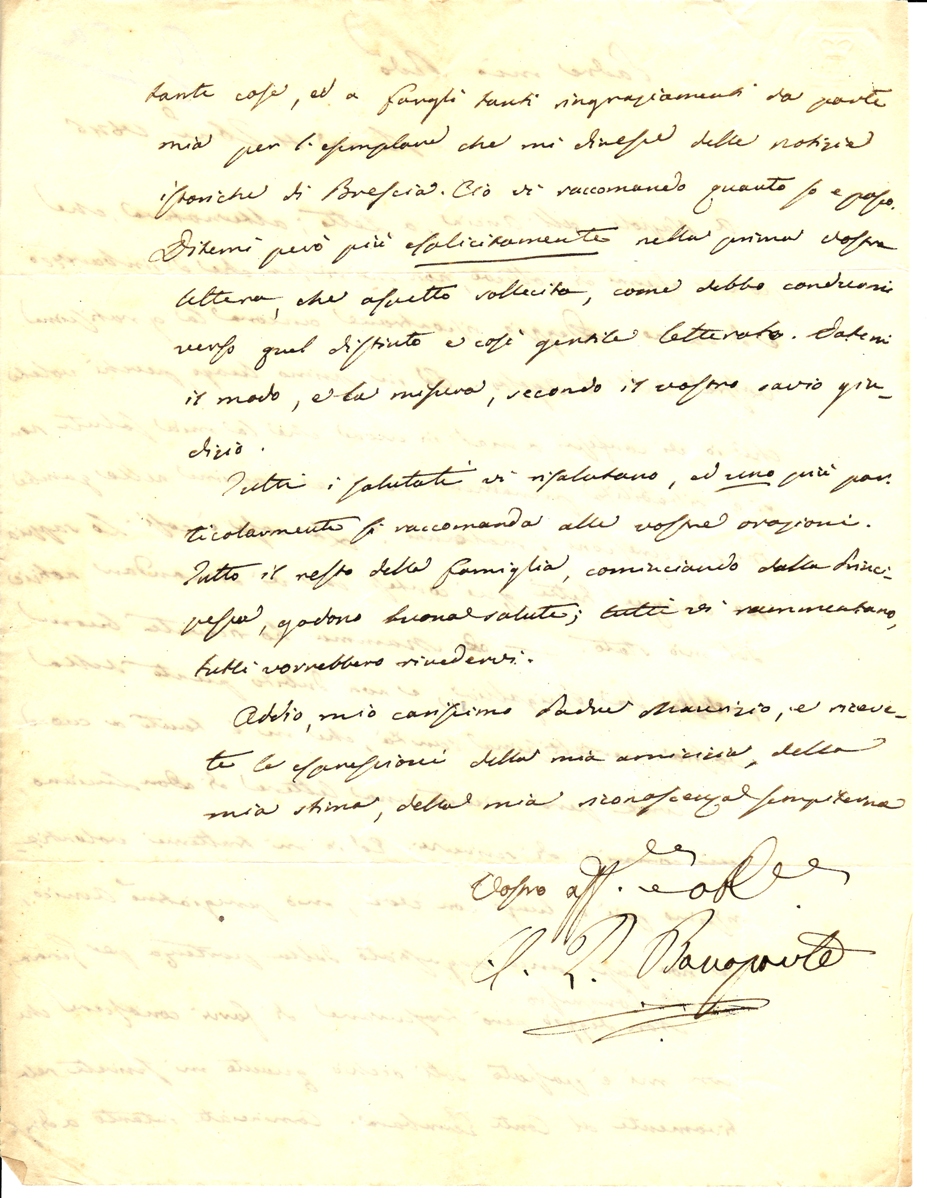 tante cose, ed a fargli tanti ringraziamenti da parte
mia per l'esemplare che mi diresse delle notizie
istoriche di Brescia. Ciò vi raccomando quanto so e posso.
Ditemi però più esplicitamente nella prima vostra
lettera, che aspetto sollecita, come debbo condurmi
verso quel distinto e così gentile letterato. Datemi
il modo, e la misura, secondo il vostro savio giu-
dizio.
Tutti i salutati vi risalutano, ed uno più par-
ticolarmente si raccomanda alle vostre orazioni.
Tutto il resto della famiglia, cominciando dalla Princi-
pessa, godono buona salute; tutti vi rammentano,
tutti vorrebbero rivedervi.
Addio, mio carissimo Padre Maurizio, e riceve-
te le espressioni della mia amicizia, della
mia stima, della mia riconoscenza sempiterna
Vostro aff.
Bonaparte